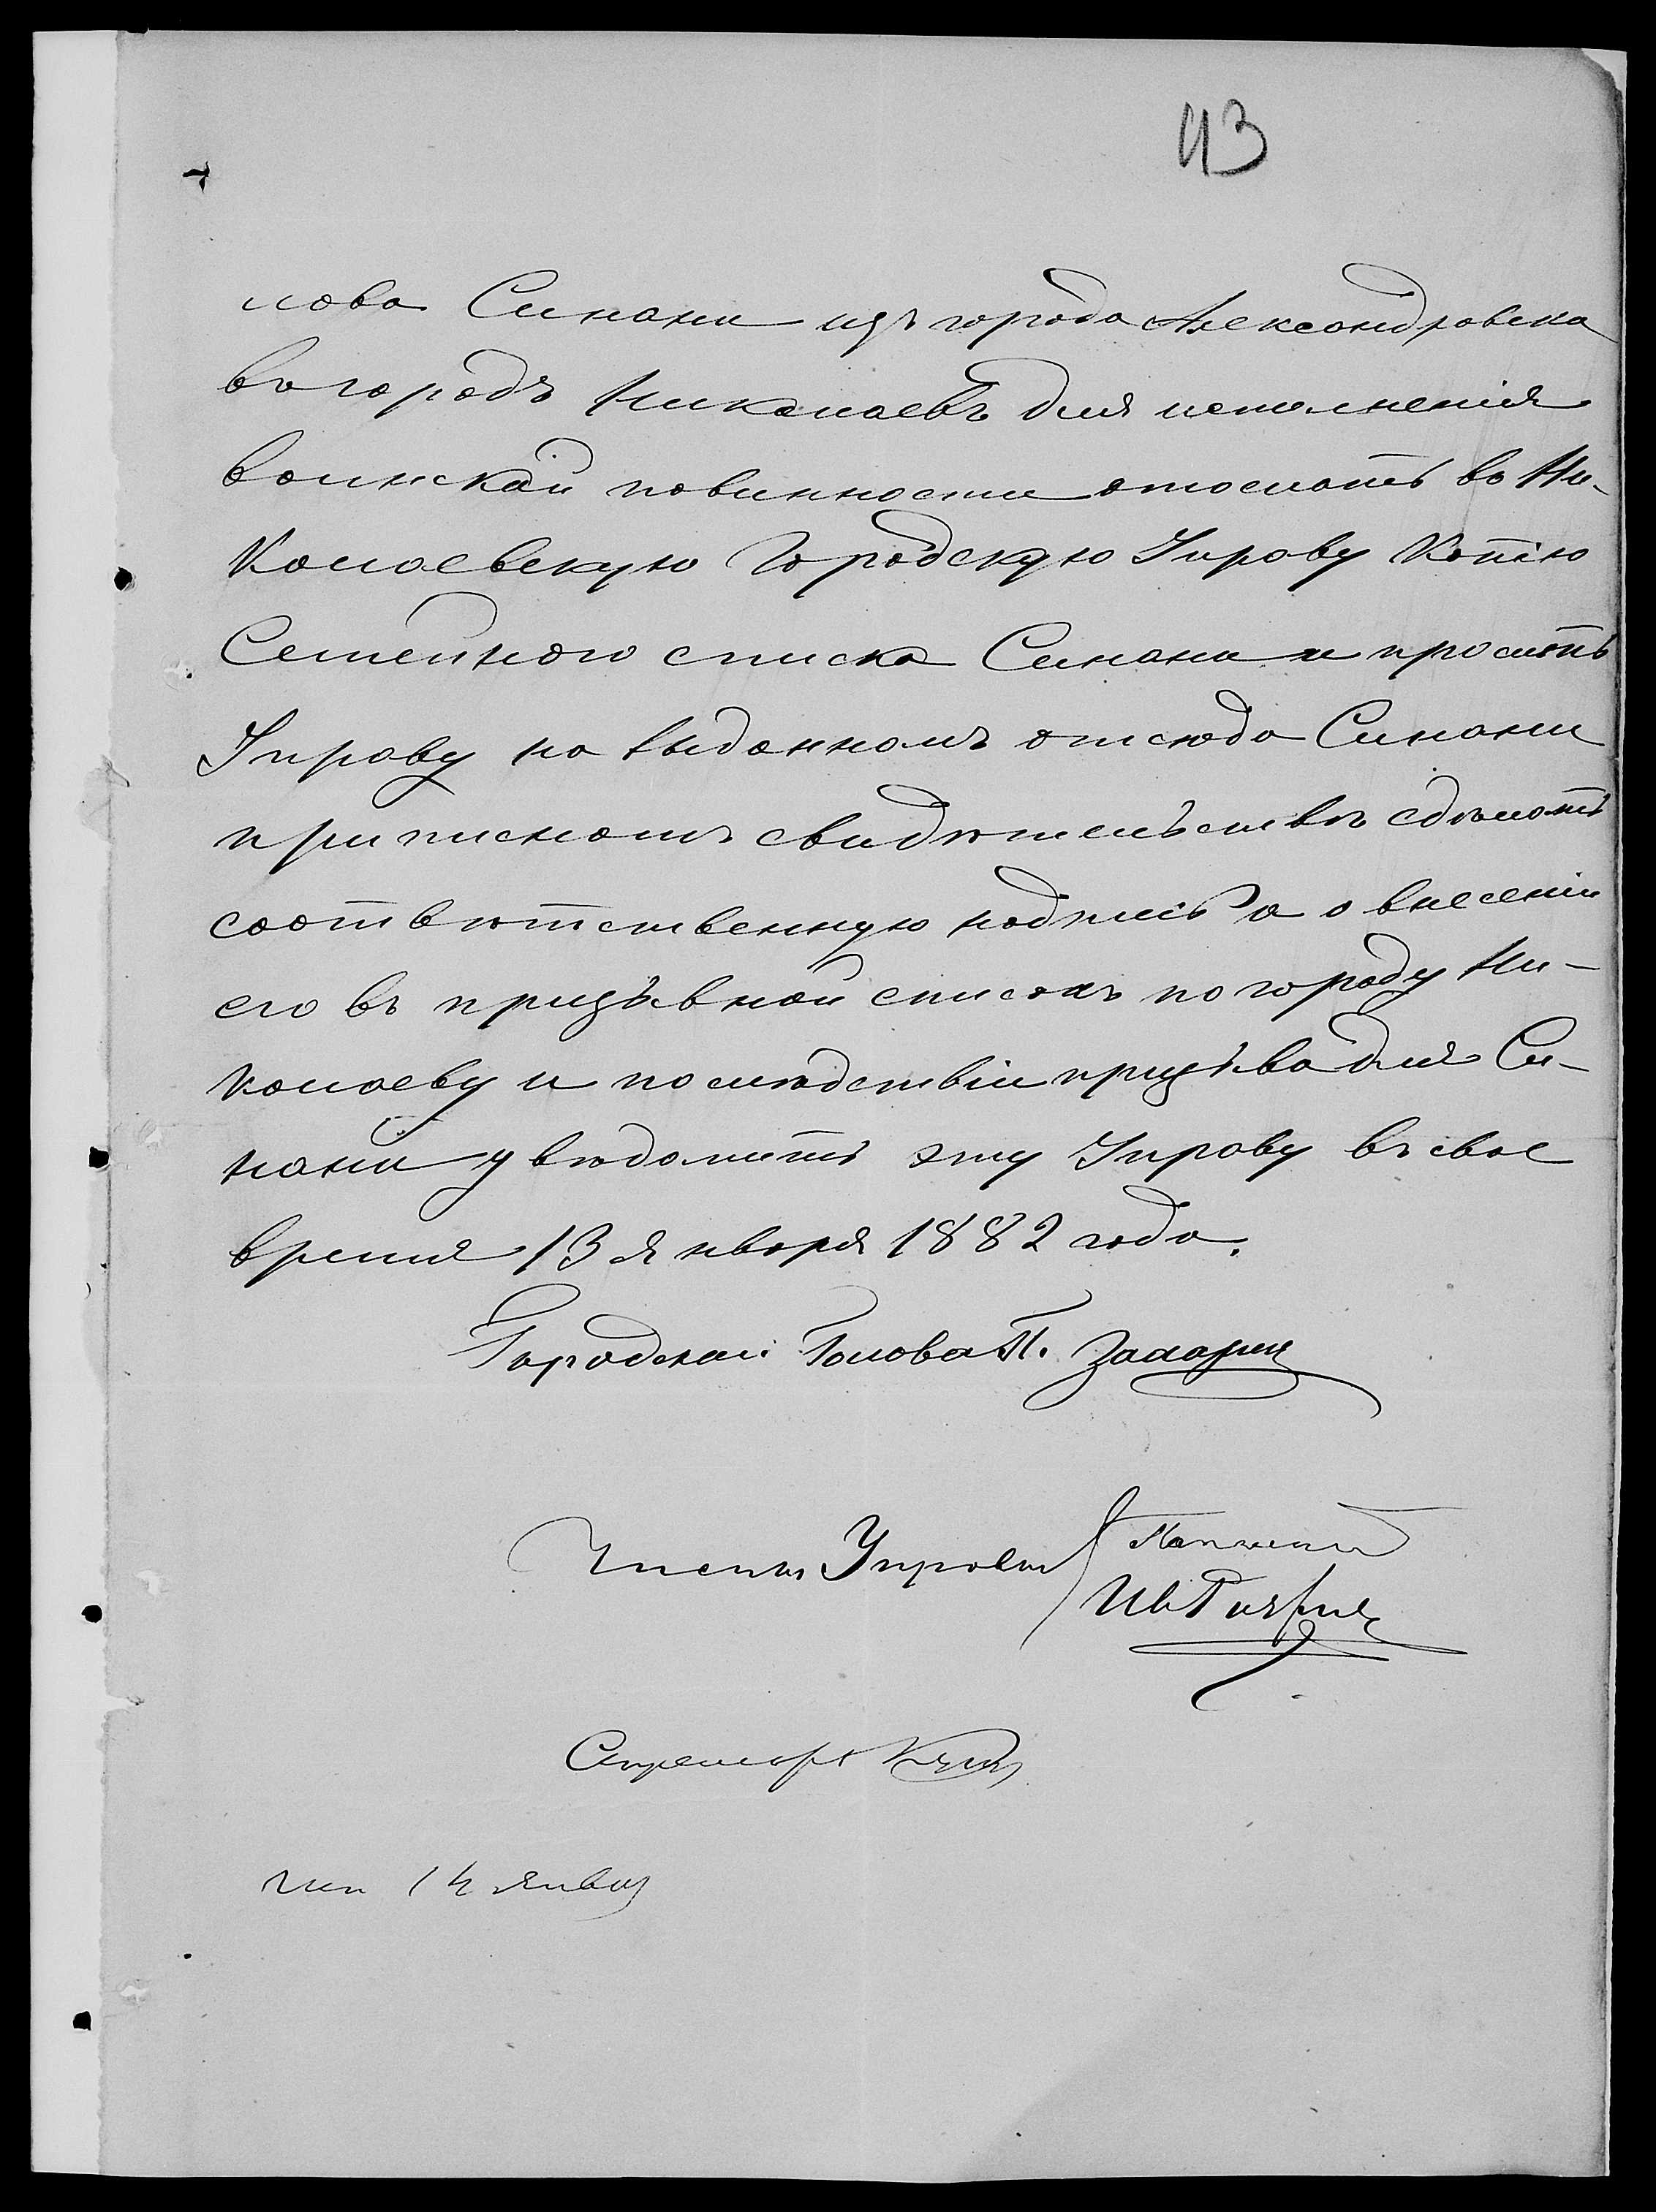 43
лова Синани изъ города Александровска
въ городъ Николаевъ для исполненія
воинской повинности отослать въ Ни-
колаевскую Городскую Управу копію
Семейного списка Синани и просить
Управу на выданномъ отсюда Синани
приписномъ свидѣтельствѣ сдѣлать
соотвѣтственную надпись а о внесеніи
его въ призывной списокъ по городу Ни-
колаеву и послѣдствіи призыва для Си-
нани увѣдомить эту Управу въ свое
время 13 января 1882 года.
Городской Голова П. Захарин
Члены Управы
Ив
Секретарь
исп 14 янвая